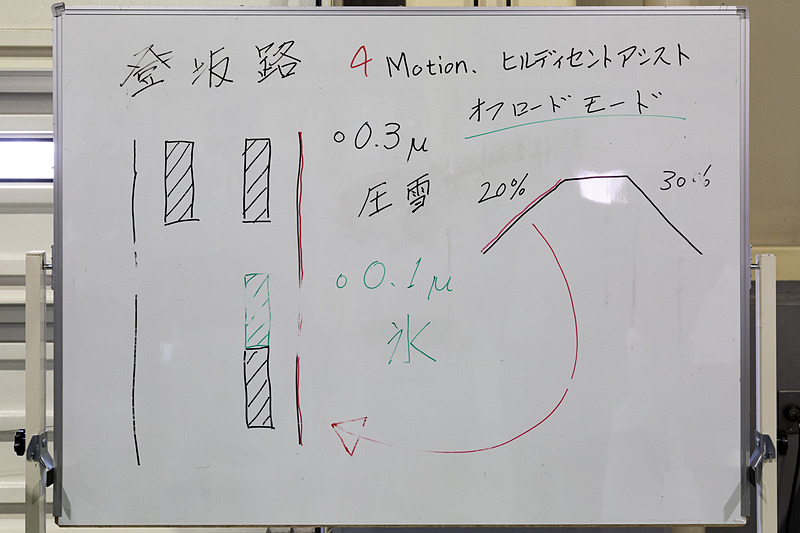 登坂路 4 Motion. ヒルディセントアシスト
オフロードモード
○0.3μ
圧雪
20% 30%
○0.1μ
氷